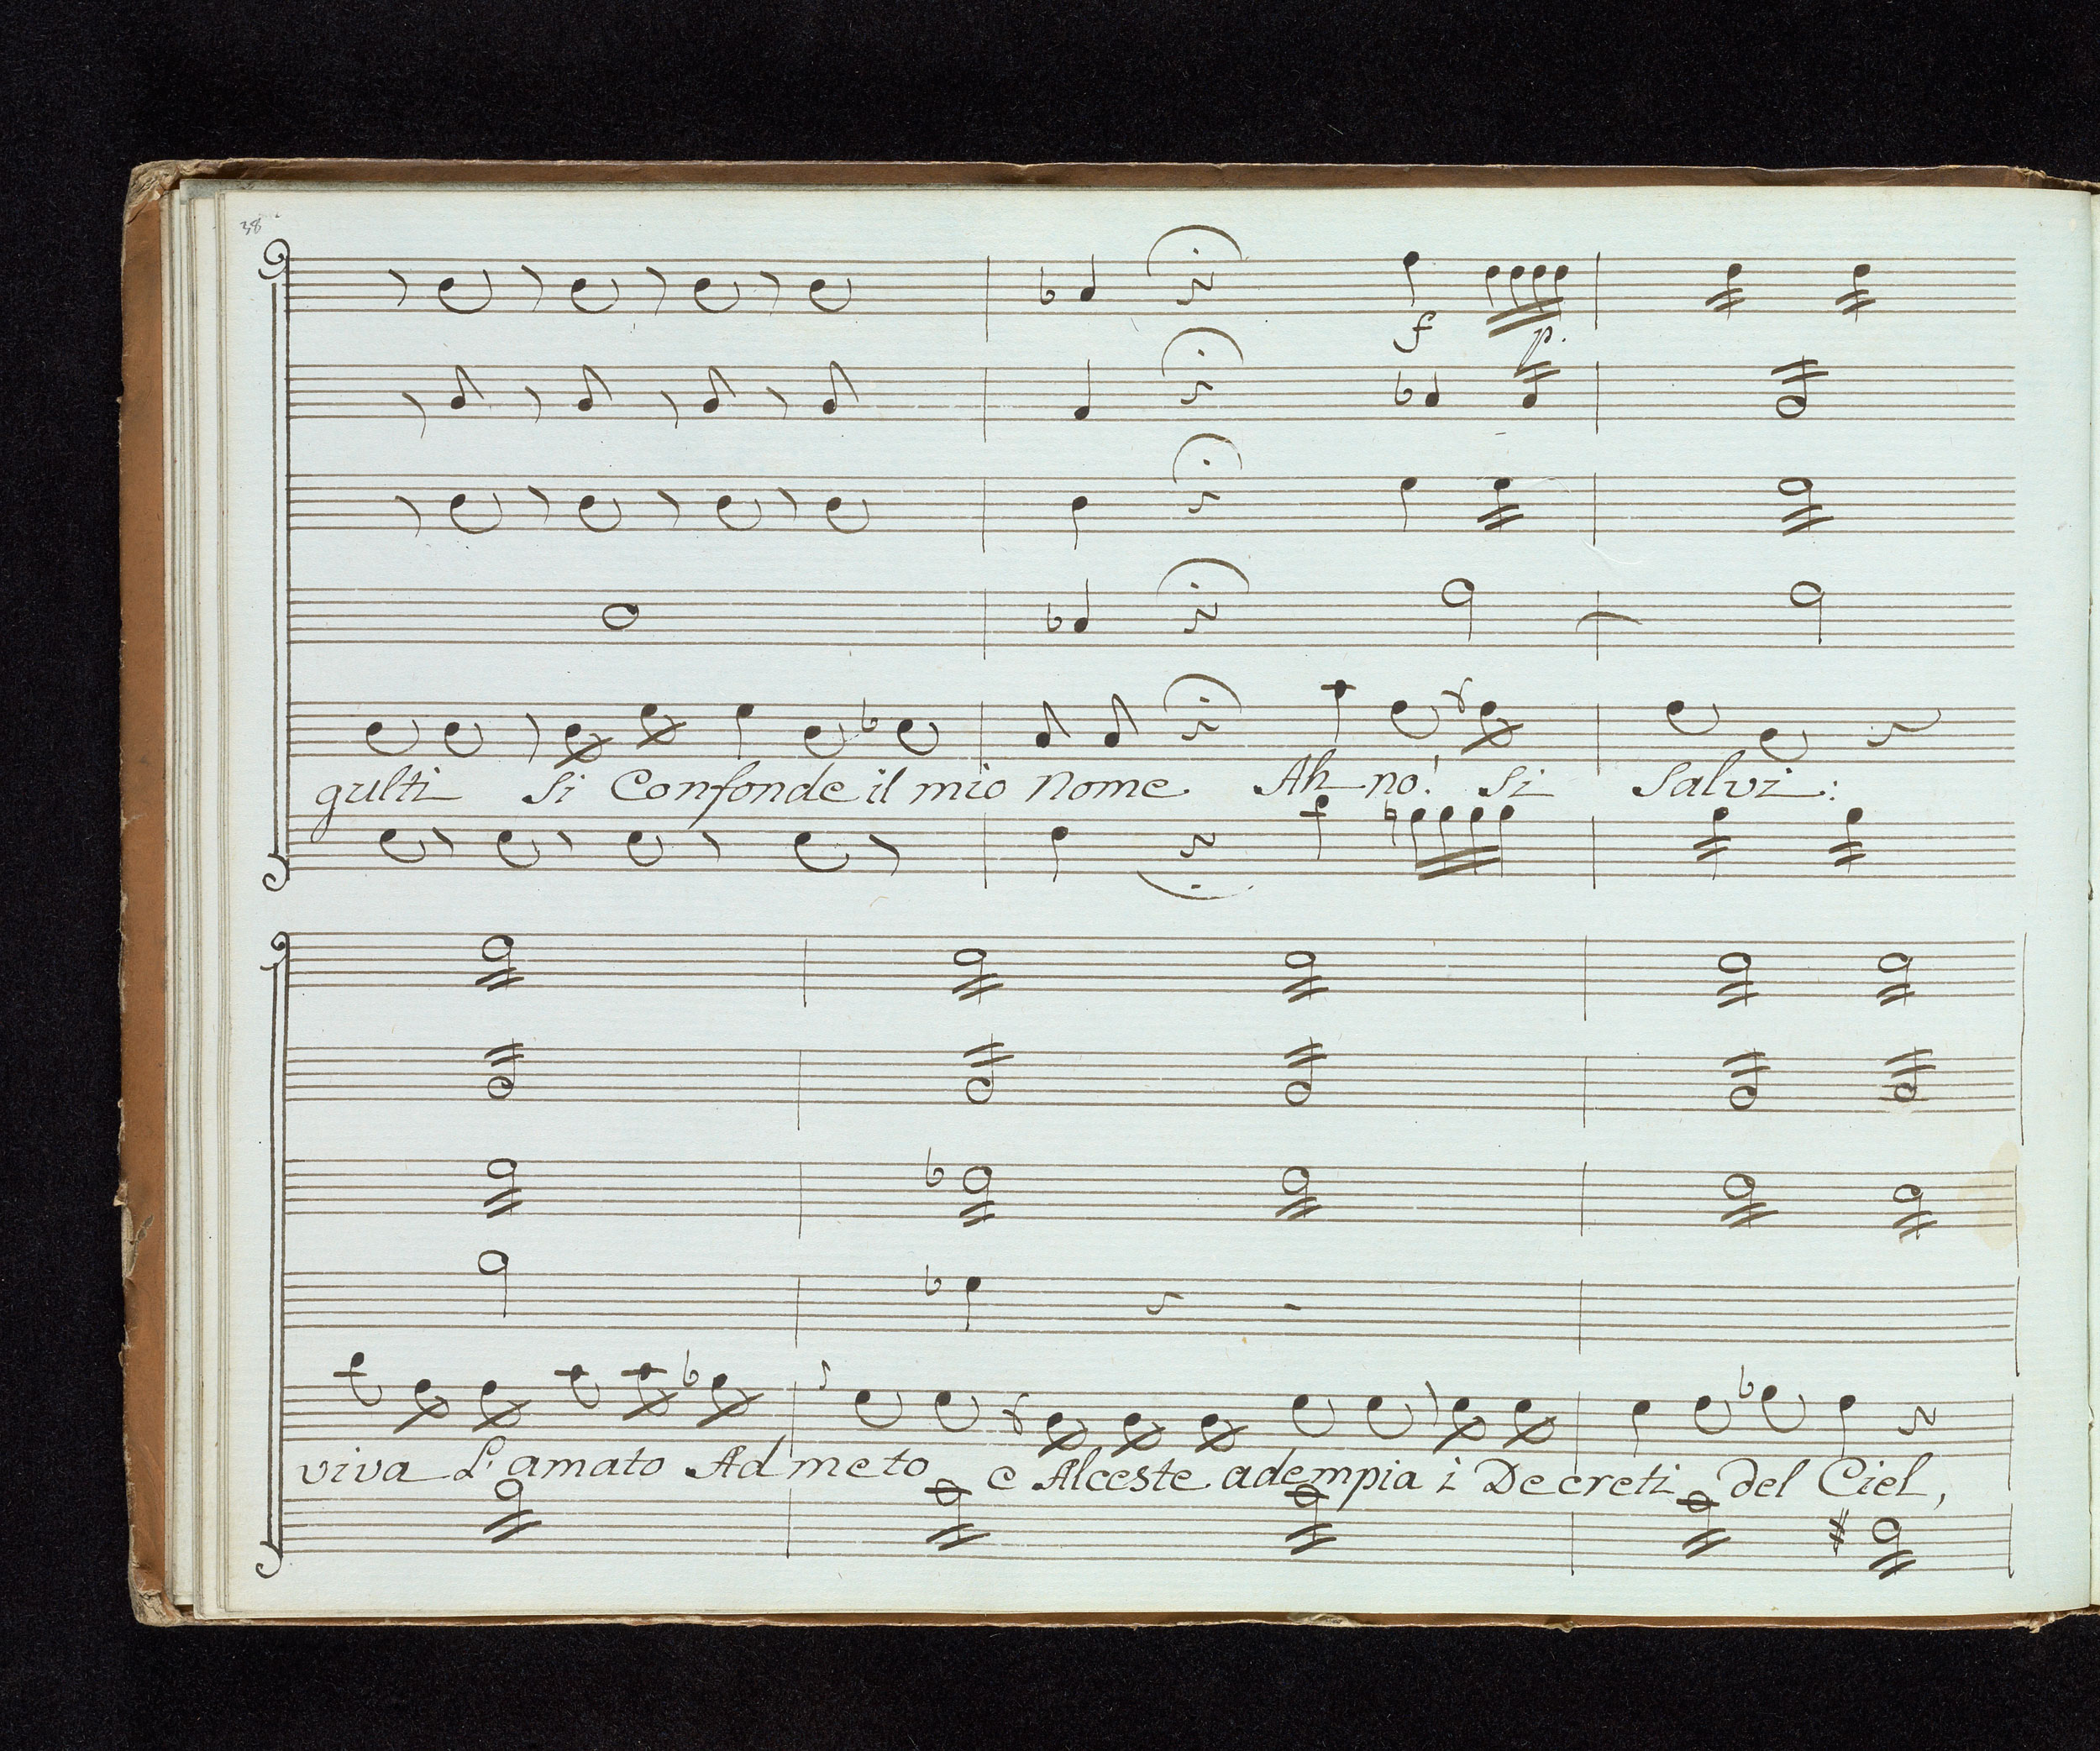 38
f p.
gulti si Confonde il mio Nome Ah no! si salvi:
viva L'amato Admeto e Alceste adempia i Decreti del Ciel,